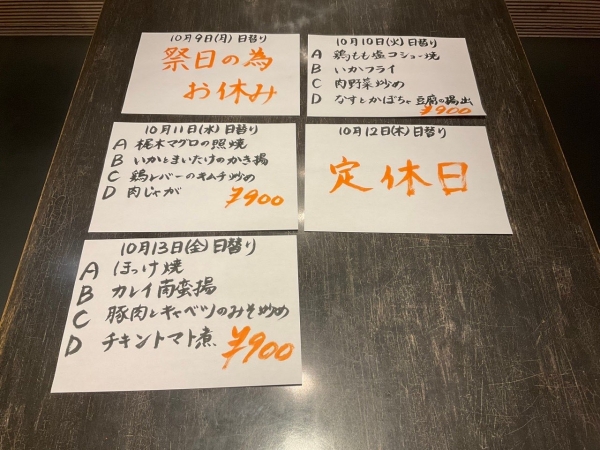 10月9日(月)日替り
祭日の為
お休み
10月10日(火)日替り
A 鶏もも塩コショー焼
B いかフライ
C 肉野菜炒め
D なすとかぼちゃ豆腐の揚出
¥900
10月11日(水)日替り
A 梶木マグロの照焼
B いかとまいたけのかき揚
C 鶏レバーのキムチ炒め
D 肉じゃが ¥900
10月12日(木)日替り
定休日
10月13日(金)日替り
A ほっけ焼
B カレイ南蛮揚
C 豚肉とキャベツのみそ炒め
D チキントマト煮 ¥900